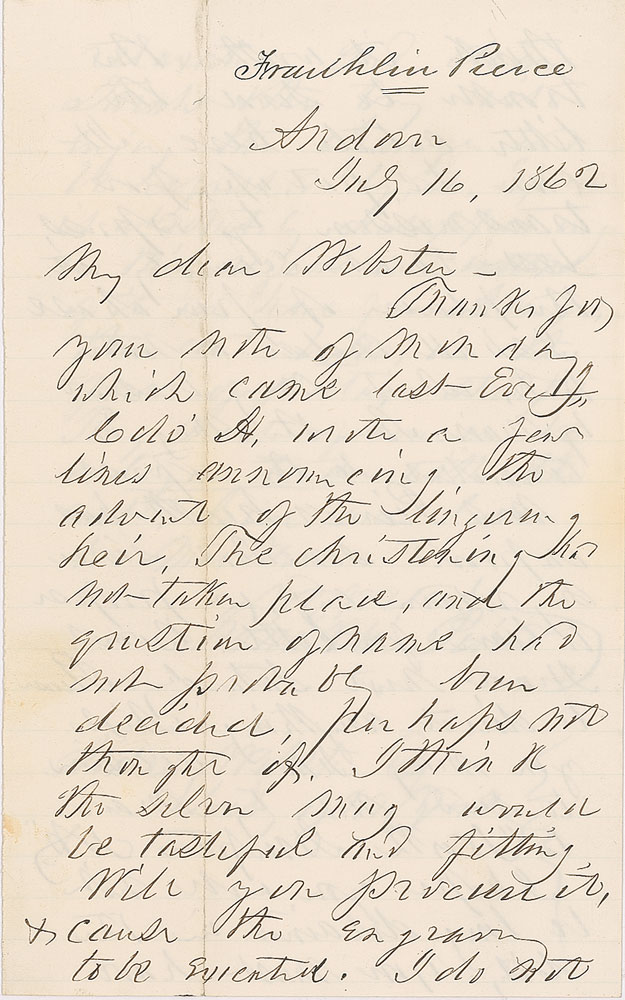 Franklin Pierce
Andover
July 16, 1862
My dear Webster –
Thanks for
your note of Monday
which came last Eve'g,
Colo' H, wrote a few
lines announcing the
advent of the lingering
heir, The christening has
not taken place, and the
question of name had
not probably been
decided, perhaps not
thought of. I think
the silver mug would
be tasteful and fitting,
Will you procure it,
& cause the engraving
to be executed. I do not